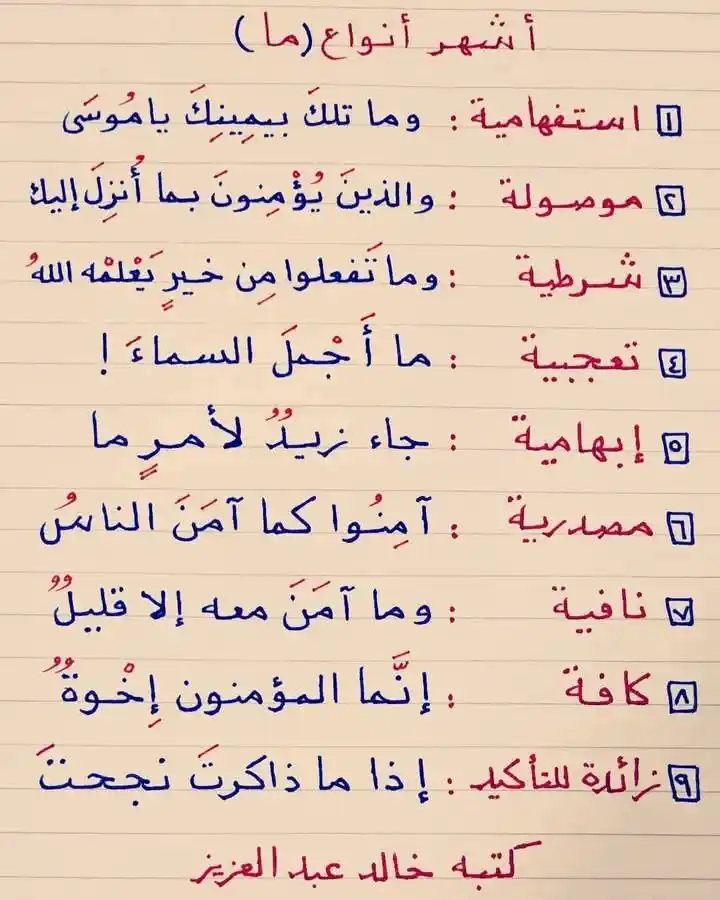 أشهر أنواع (ما)
١ استفهامية : وما تلكَ بيمِينِكَ يامُوسَى
٢ موصولة : والذينَ يُؤْمِنونَ بما أُنزِلَ إليك
٣ شرطية : وما تَفعلوا مِن خيرٍ يَعْلمْه اللهُ
٤ تعجبية : ما أَجْملَ السماءَ !
٥ إبهامية : جاء زيدٌ لأمرٍ ما
٦ مصدرية : آمِنُوا كما آمَنَ الناسُ
٧ نافية : وما آمَنَ معه إلا قليلٌ
٨ كافة : إنَّما المؤمنون إِخْوةٌ
٩ زائدة للتأكيد : إذا ما ذاكرتَ نجحتَ
كتبه خالد عبد العزيز